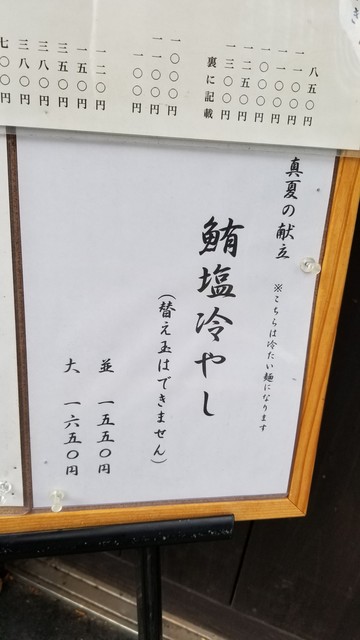 き
八五〇円
一一〇〇円
一〇〇〇円
一二五〇円
一三〇〇円
裏に記載
一〇〇〇円
一一〇〇円
一〇〇円
一二〇円
一五〇円
三五〇円
三八〇円
三八〇円
七〇〇円
真夏の献立
※こちらは冷たい麺になります
鮪塩冷やし
(替え玉はできません)
並 一五五〇円
大 一六五〇円